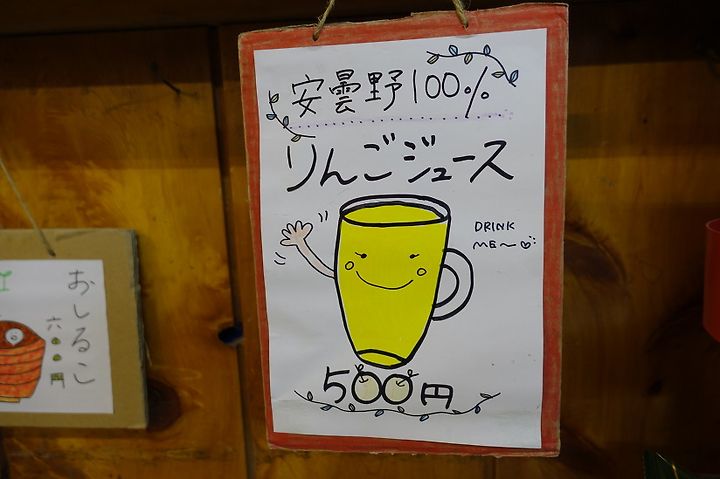 安曇野100%
りんごジュース
DRINK
ME～
500円
おしるこ
六〇〇円